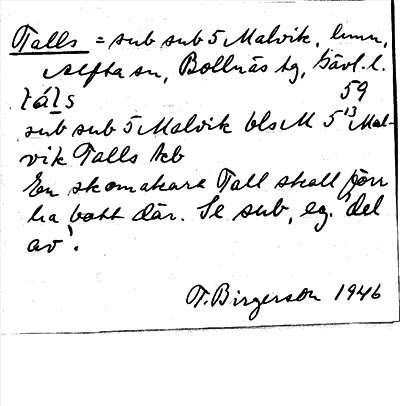 Talls = sub sub 5 Malvik, hmn,
Alfta sn, Bollnäs tg, Gävl. l.
tál̲s 59
sub sub 5 Malvik bls M 5¹³ Mal-
vik Talls Hcb
En skomakare Tall skall förr
ha bott där. Se sub, eg. 'del
av'.
T. Birgerson 1946